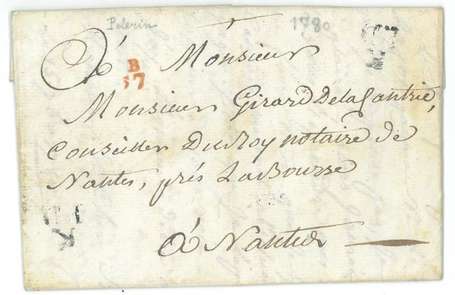 Pelerin 1780
à Monsieur
B
57
Monsieur Girard Delagantrie,
Conseiller Du Roy notaire de
Nantes, près La Bourse
à Nantes